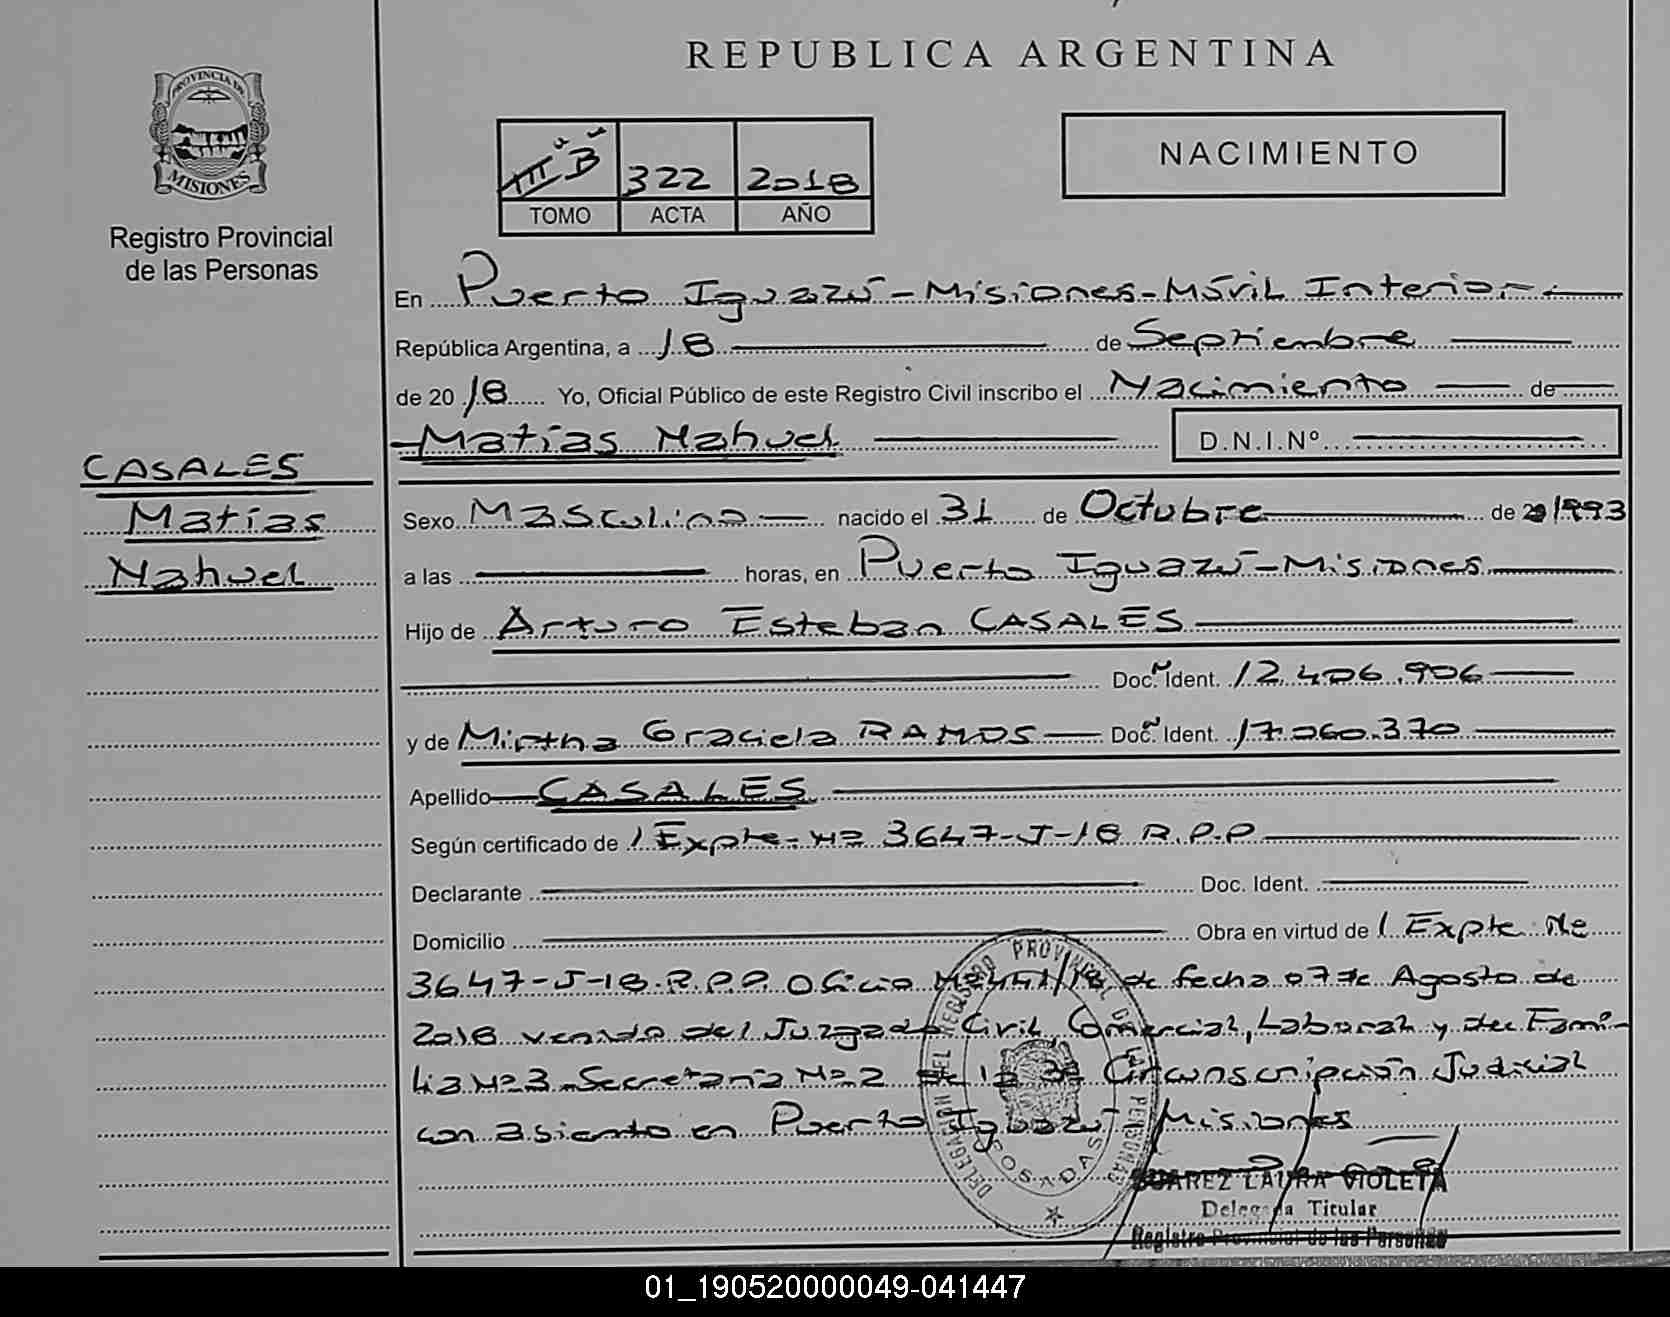 REPUBLICA ARGENTINA
PROVINCIA DE
MISIONES
Registro Provincial
de las Personas
III "B" 322 2018
TOMO ACTA AÑO
NACIMIENTO
En Puerto Iguazú - Misiones - Móvil Interior
República Argentina, a 18 de Septiembre
de 2018 Yo, Oficial Público de este Registro Civil inscribo el Nacimiento de
Matías Nahuel D.N.I.Nº
CASALES
Matías
Nahuel
Sexo Masculino nacido el 31 de Octubre de 1993
a las horas, en Puerto Iguazú - Misiones
Hijo de Arturo Esteban CASALES
Doc. Ident. 12.406.906
y de Mirtha Graciela RAMOS Doc. Ident. 17.060.370
Apellido CASALES
Según certificado de / Expte - Nº 3647-J-18 R.P.P
Declarante Doc. Ident.
Domicilio Obra en virtud de / Expte Nº
3647-J-18.R.P.P. Oficio de fecha 07 de Agosto de
2018 venido del Juzgado Civil, Comercial, Laboral y de Fami-
lia Nº 3 - Secretaría Nº 2 de la Circunscripción Judicial
con asiento en Puerto Iguazú Misiones
DELEGACION DEL REGISTRO PROVINCIAL DE LAS PERSONAS
POSADAS
SUAREZ LAURA VIOLETA
Delegada Titular
Registro Provincial de las Personas
01_190520000049-041447